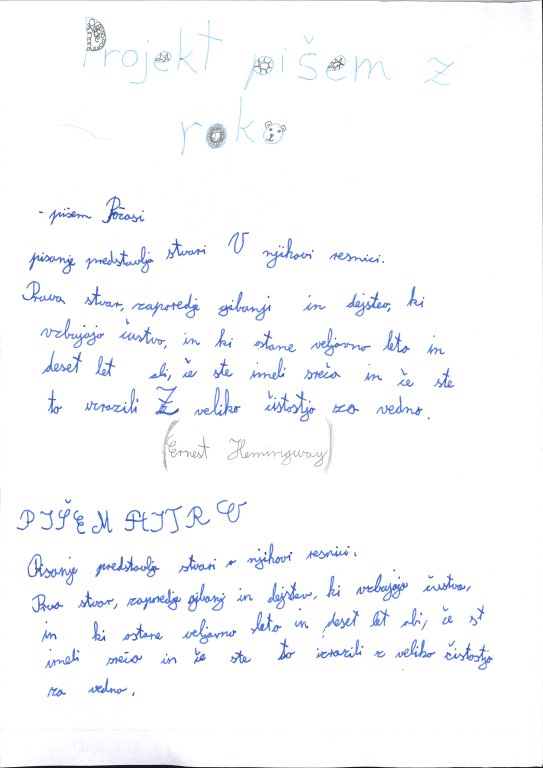 Projekt pišem z
roko
- pišem Počasi
pisanje predstavlja stvari V njihovi resnici.
Prava stvar, zaporedje gibanji in dejstev, ki
vzbujajo čustvo, in ki ostane veljavno leto in
deset let ali, če ste imeli sreča in če ste
to izrazili Z veliko čistostjo za vedno.
(Ernest Hemingway)
PIŠEM HITRO
Pisanje predstavlja stvari v njihovi resnici.
Prva stvar, zaporedje gibanj in dejstev, ki vzbujajo čustvo,
in ki ostane veljavno leto in deset let ali, če st
imeli sreča in če ste to izrazili z veliko čistostjo
za vedno.